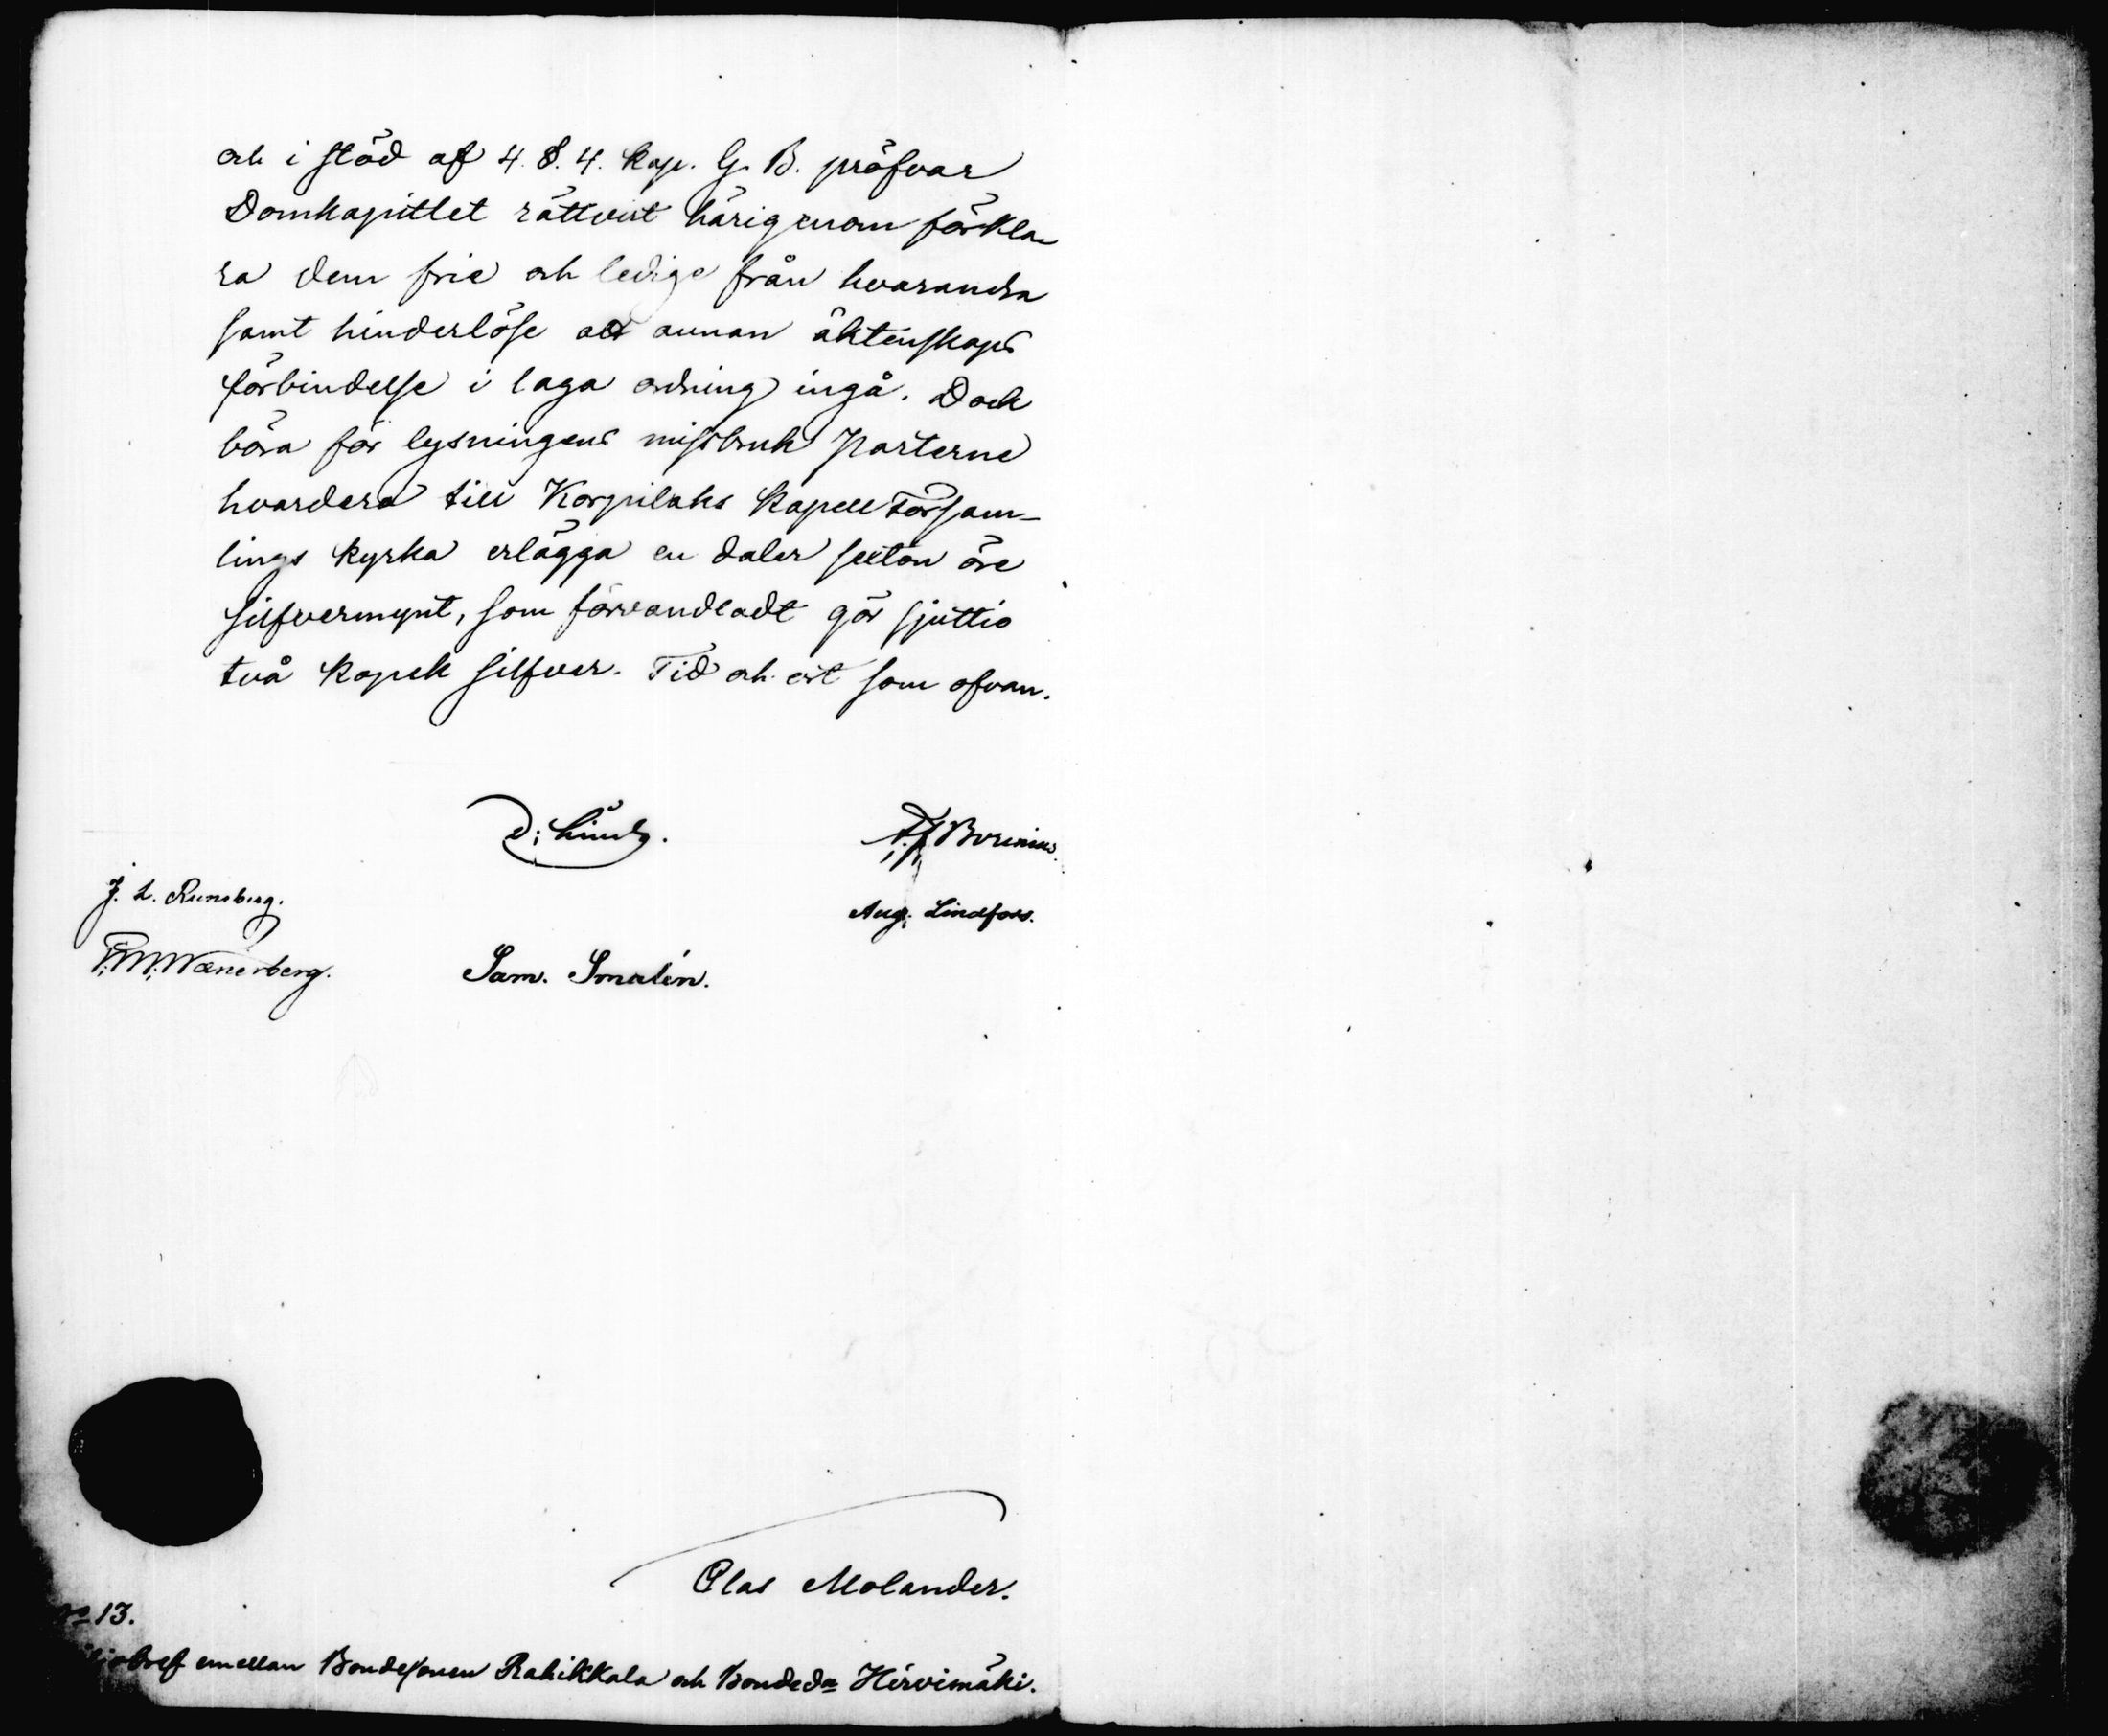 och i stöd af 4. §. 4. Kap. G. B. pröfvar
Domkapitlet rättvist härigenom förkla-
ra dem frie och ledige från hvarandra
samt hinderlöse att annan äktenskaps
förbindelse i laga ordning ingå. Dock
böra för lysningens missbruk Parterne
hvardera till Korpilaks Kapell Försam-
lings Kyrka erlägga en daler sexton öre
silfvermynt, som förvandladt gör sjuttio
två Kopek silfver. Tid och ort som ofvan.
A. J. Borenius.
J. L. Runeberg.
Aug. Lindfors.
F. M. Wænerberg.
Sam. Smalén.
Clas Molander.
No 13.
emellan Bondesonen Rahikkala och bondeda Hirvimäki.